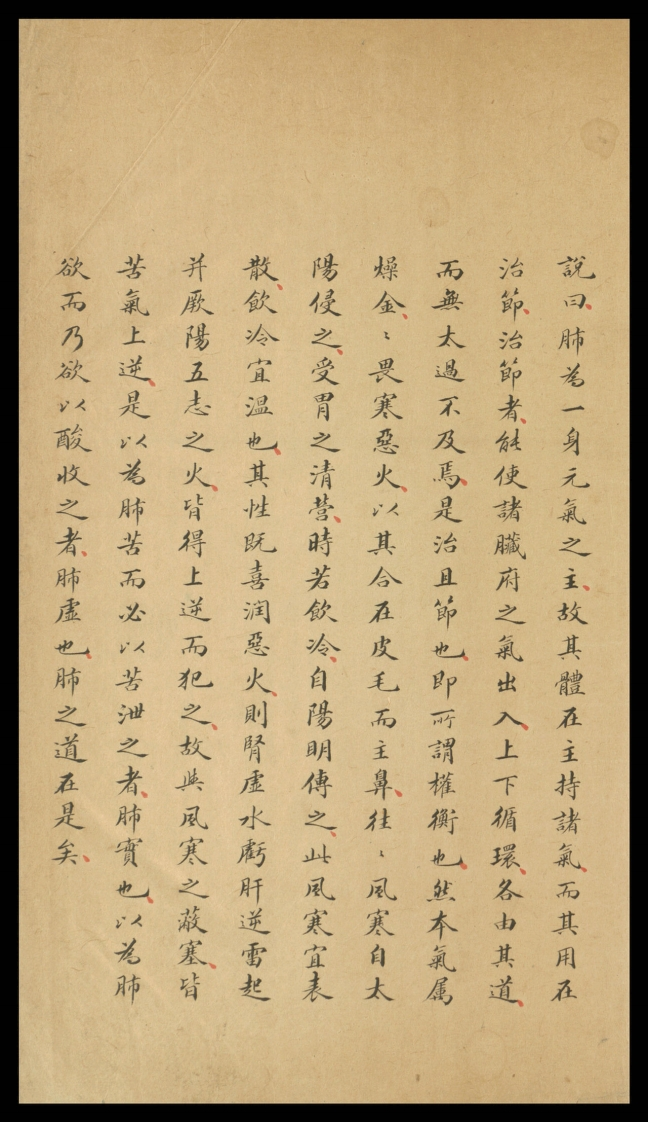 說曰肺為一身元氣之主故其體在主持諸氣而其用在
治節治節者能使諸臟府之氣出入上下循環各由其道
而無太過不及焉是治且節也即所謂權衡也然本氣屬
燥金〻畏寒惡火以其合在皮毛而主鼻往〻風寒自太
陽侵之受胃之清營時若飲冷自陽明傳之此風寒宜表
散飲冷宜溫也其性既喜润惡火則腎虛水虧肝逆雷起
并厥陽五志之火皆得上逆而犯之故與風寒之蔽塞皆
苦氣上逆是以為肺苦而必以苦泄之者肺實也以為肺
欲而乃欲以酸收之者肺虛也肺之道在是矣